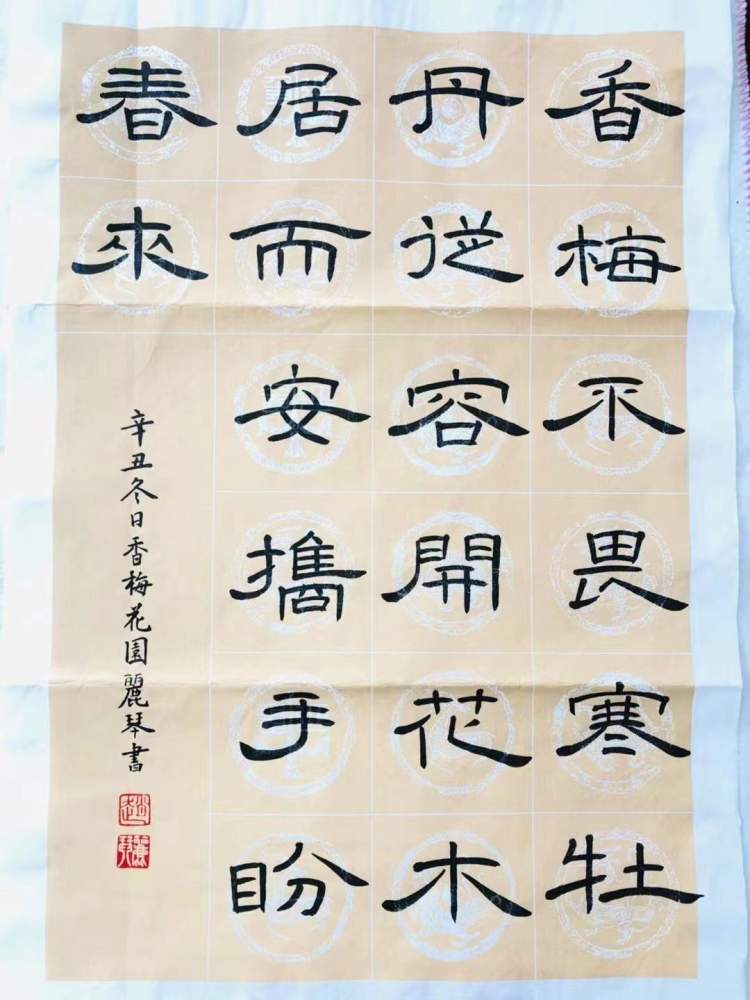 香梅不畏寒牡
丹從容開花木
居而安擕手盼
春來
辛丑冬日香梅花園麗琴書